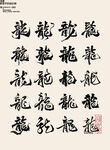 龍 龍 龍 龍
龍 龍 龍 龍
龍 龍 龍 龍
龍 龍 龍 龍
龍 龍 龍 龍